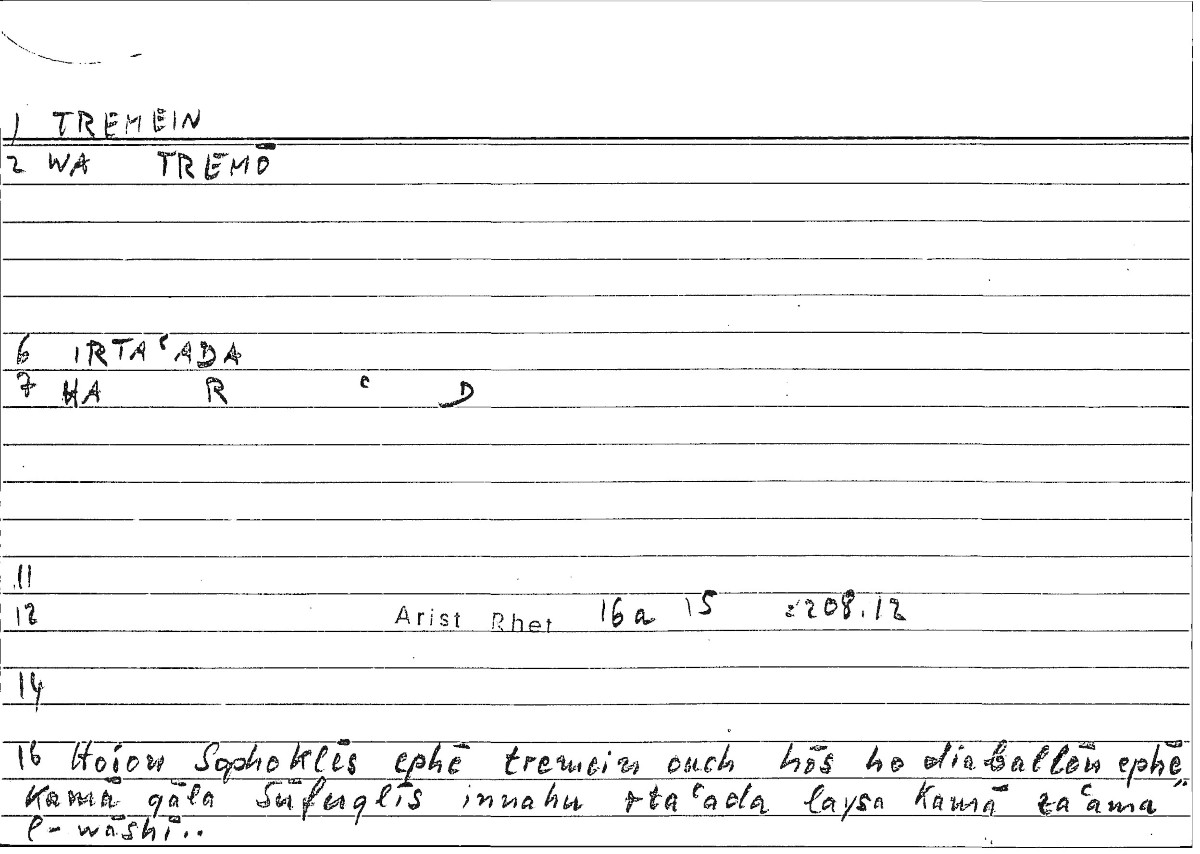 1 TREMEIN
2 WA TREMŌ
6 IRTAʿADA
7 HA R ʿ D
11
12 Arist Rhet 16a 15 :208.12
14
16 Hoion Sophoklēs ephē tremein ouch hōs ho diaballōn ephē,
Kamā qāla Sūfuqlīs innahu rtaʿada laysa Kamā zaʿama
l-wāshī..